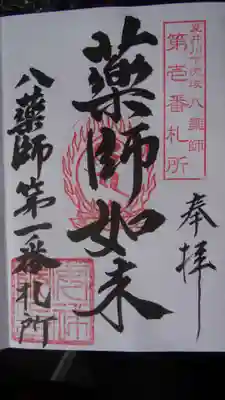 奉拝
八薬師
第壱番札所
薬師如来
八薬師第一番札所